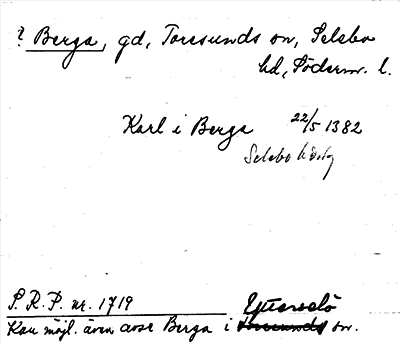 ? Berga, gd, Toresunds sn, Selebo
hd, Söderm. l.
Karl i Berga 22/5 1382
Selebo hdstg
S.R.P. nr. 1719
Kan möjl. även avse Berga i Ytterselö sn.